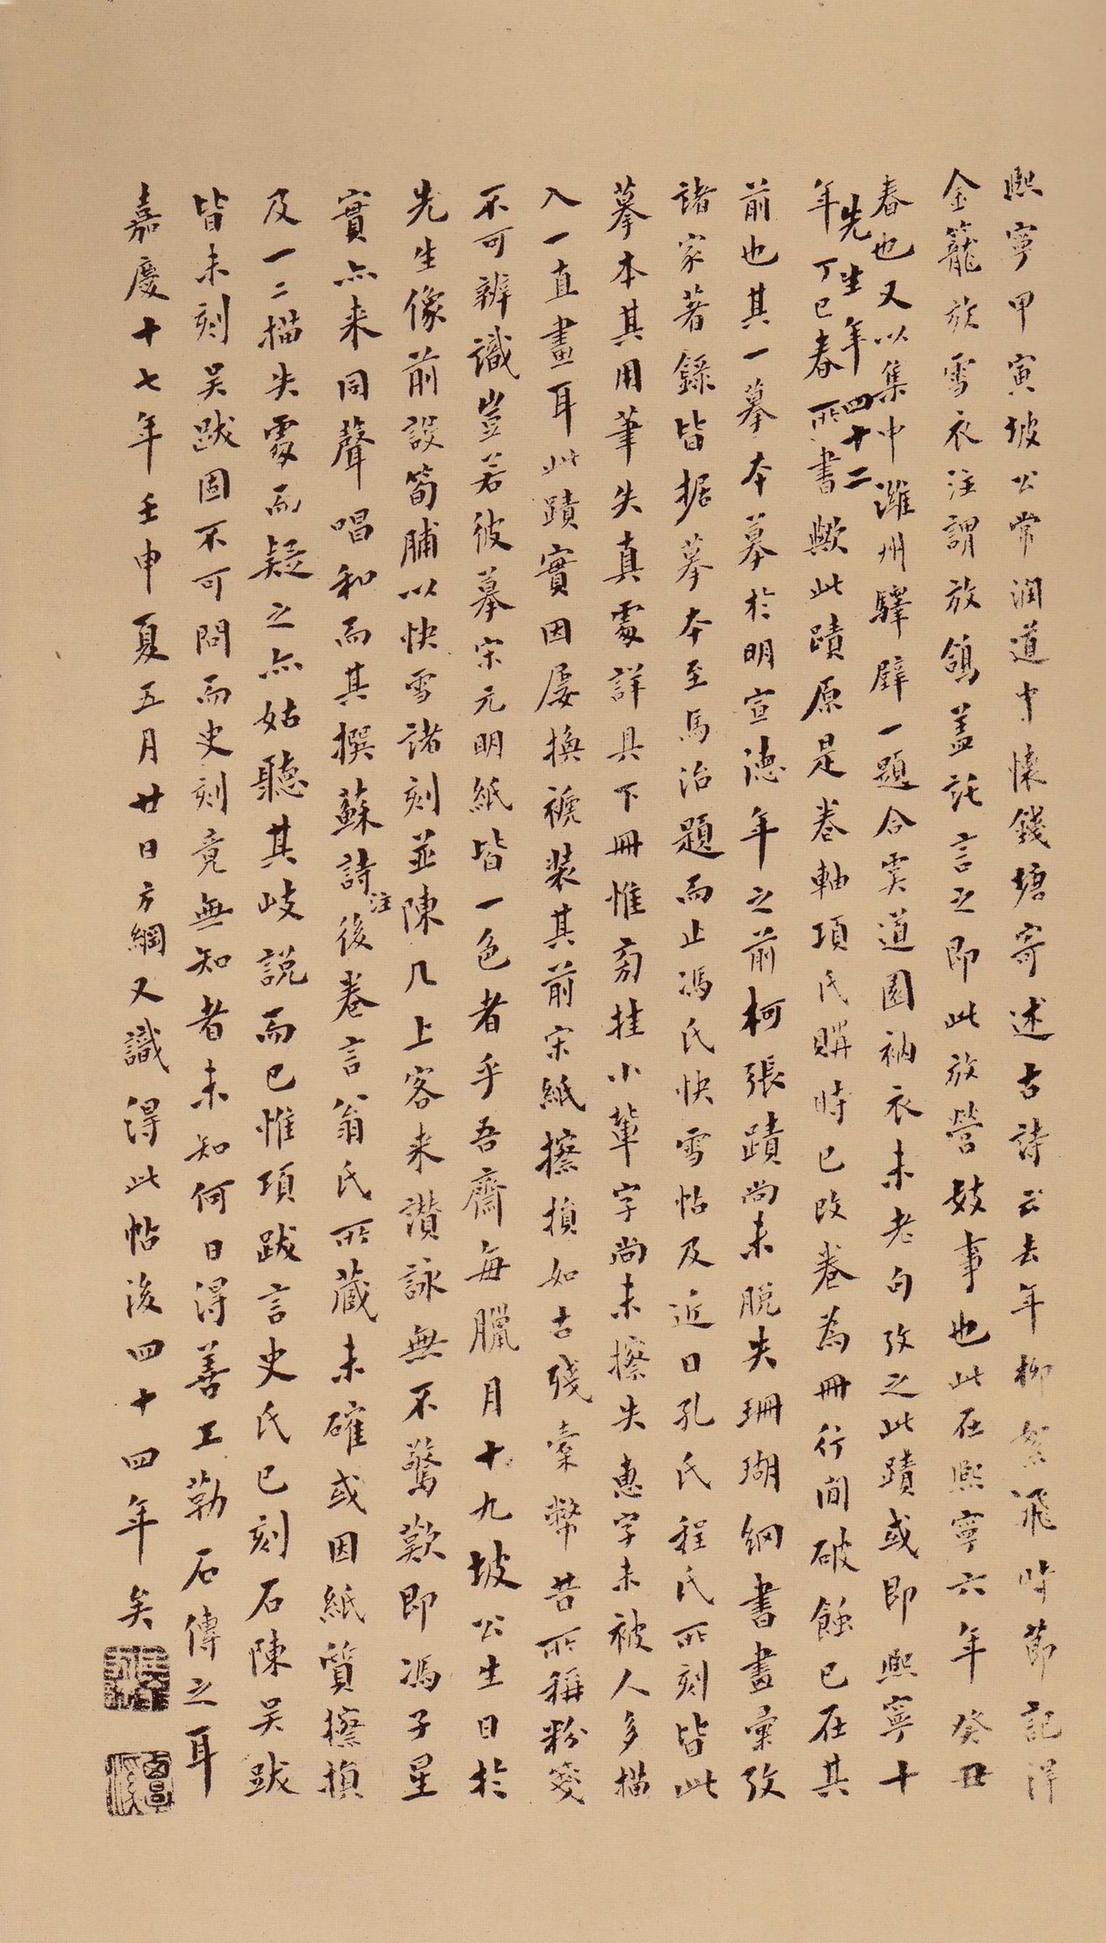 熙寧甲寅坡公常润道中懐錢塘寄述古詩云去年柳絮飛時節記得
金籠放雪衣注謂放鴿蓋託言之即此放營妓事也此在熙寧六年癸丑
春也又以集中濰州驛壁一題合之道園衲衣未老句攷之此蹟或即熙寧十
先生年四十二
年丁巳春所書歟此蹟原是卷軸項氏購時已改卷為冊行間破蝕已在其
前也其一摹本摹於明宣德年之前柯張蹟尚未脫失珊瑚網書畫彙攷
諸家著錄皆据摹本至馬治題而止馮氏快雪帖及近日孔氏程氏所刻皆此
摹本其用筆失真處詳具下冊惟剪挂小葦字尚未擦失惠字未被人多描
入一直畫耳此蹟實因屡換褫装其前宋紙擦損如古殘橐幣昔所稱粉箋
不可辨識豈若彼摹宋元明紙皆一色者乎吾齋每臘月十九坡公生日於
先生像前設筍脯以快雪諸刻並陳几上客来讃詠無不驚歎即馮子星
實亦来同聲唱和而其撰蘇詩注後卷言翁氏所蔵未確或因紙質擦損
及一二描失處而疑之亦姑聽其歧説而已惟項跋言史氏已刻石陳吴跋
皆未刻吴跋固不可問而史刻竟無知者未知何日得善工勒石傳之耳
嘉慶十七年壬申夏五月廿日方綱又識得此帖後四十四年矣